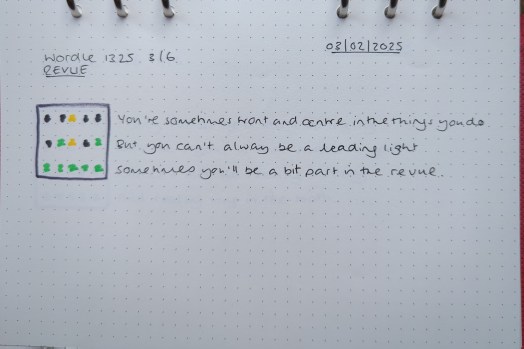 03/02/2025
Wordle 1325 3/6
REVUE
You're sometimes front and centre in the things you do
But you can't alway be a leading light
Sometimes you'll be a bit part in the revue.